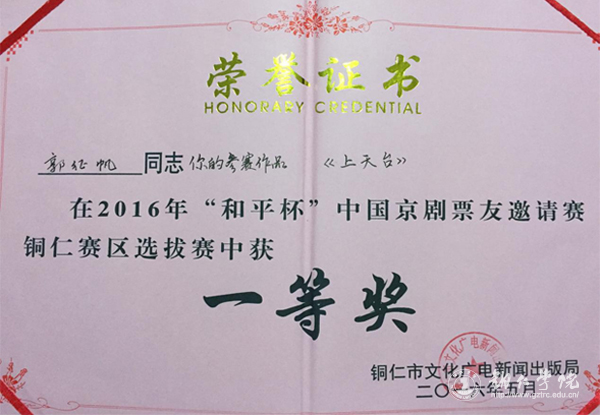 荣誉证书
HONORARY CREDENTIAL
郭征帆 同志 你的参赛作品 《上天台》
在2016年“和平杯”中国京剧票友邀请赛
铜仁赛区选拔赛中获
一等奖
文化广电新闻
铜仁市文化广电新闻出版局
二〇一六年五月
铜仁学院
www.gztrc.edu.cn/